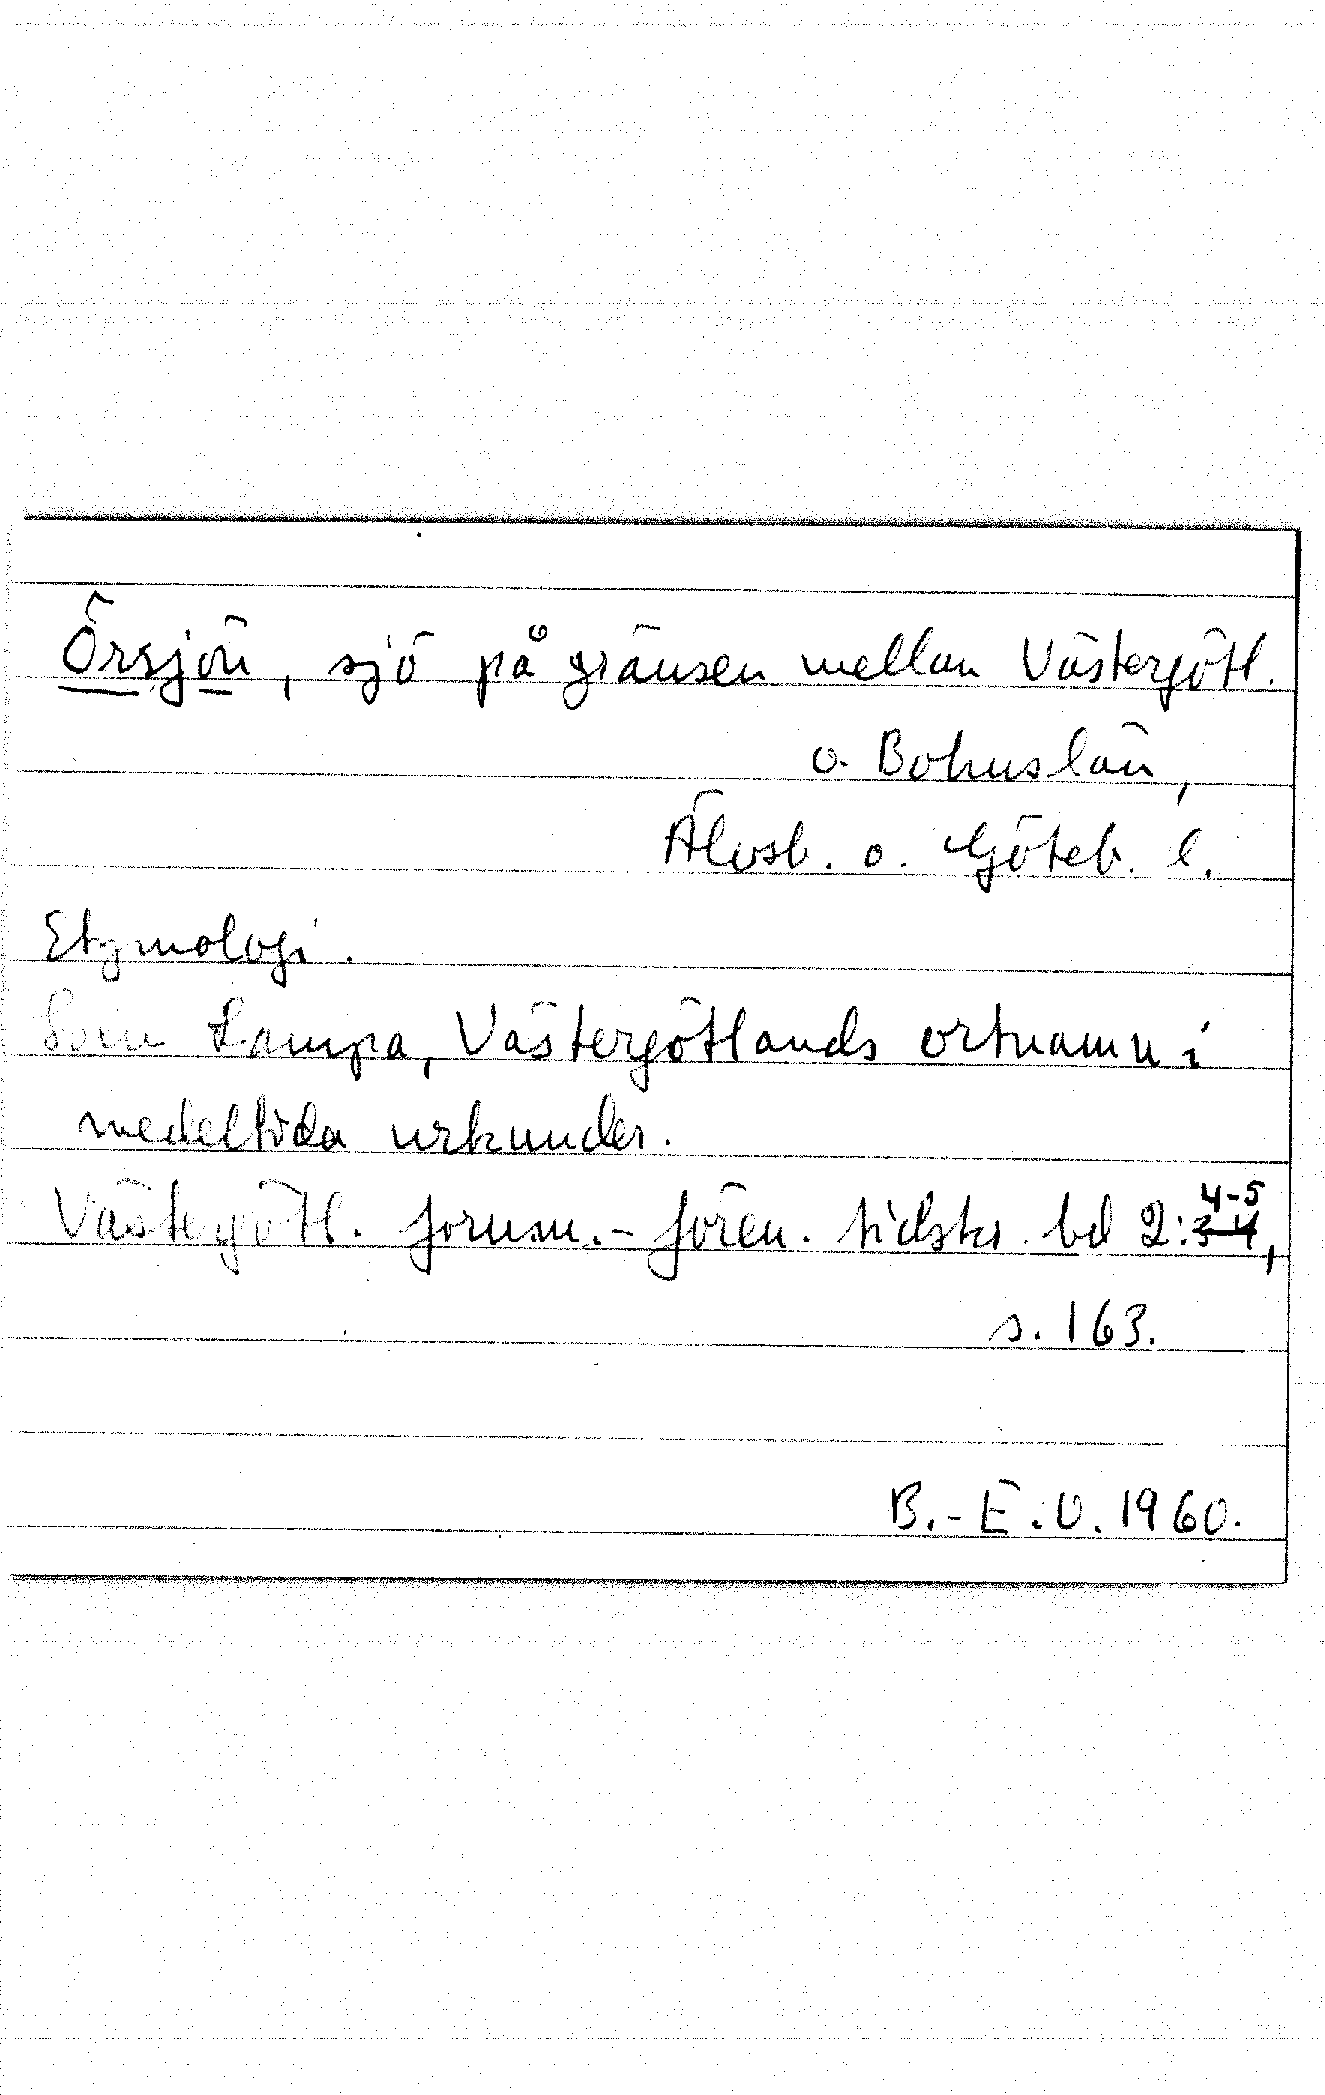 Örsjön, sjö på gränsen mellan Västergötl.
o. Bohuslän,
Älvsb. o. Göteb. l.
Etymologi.
Sven Lampa, Västergötlands ortnamn i
medeltida urkunder.
Västergötl. fornm.-fören. tidskr. bd 2:3-4 4-5,
s. 163.
B.-E. U. 1960.